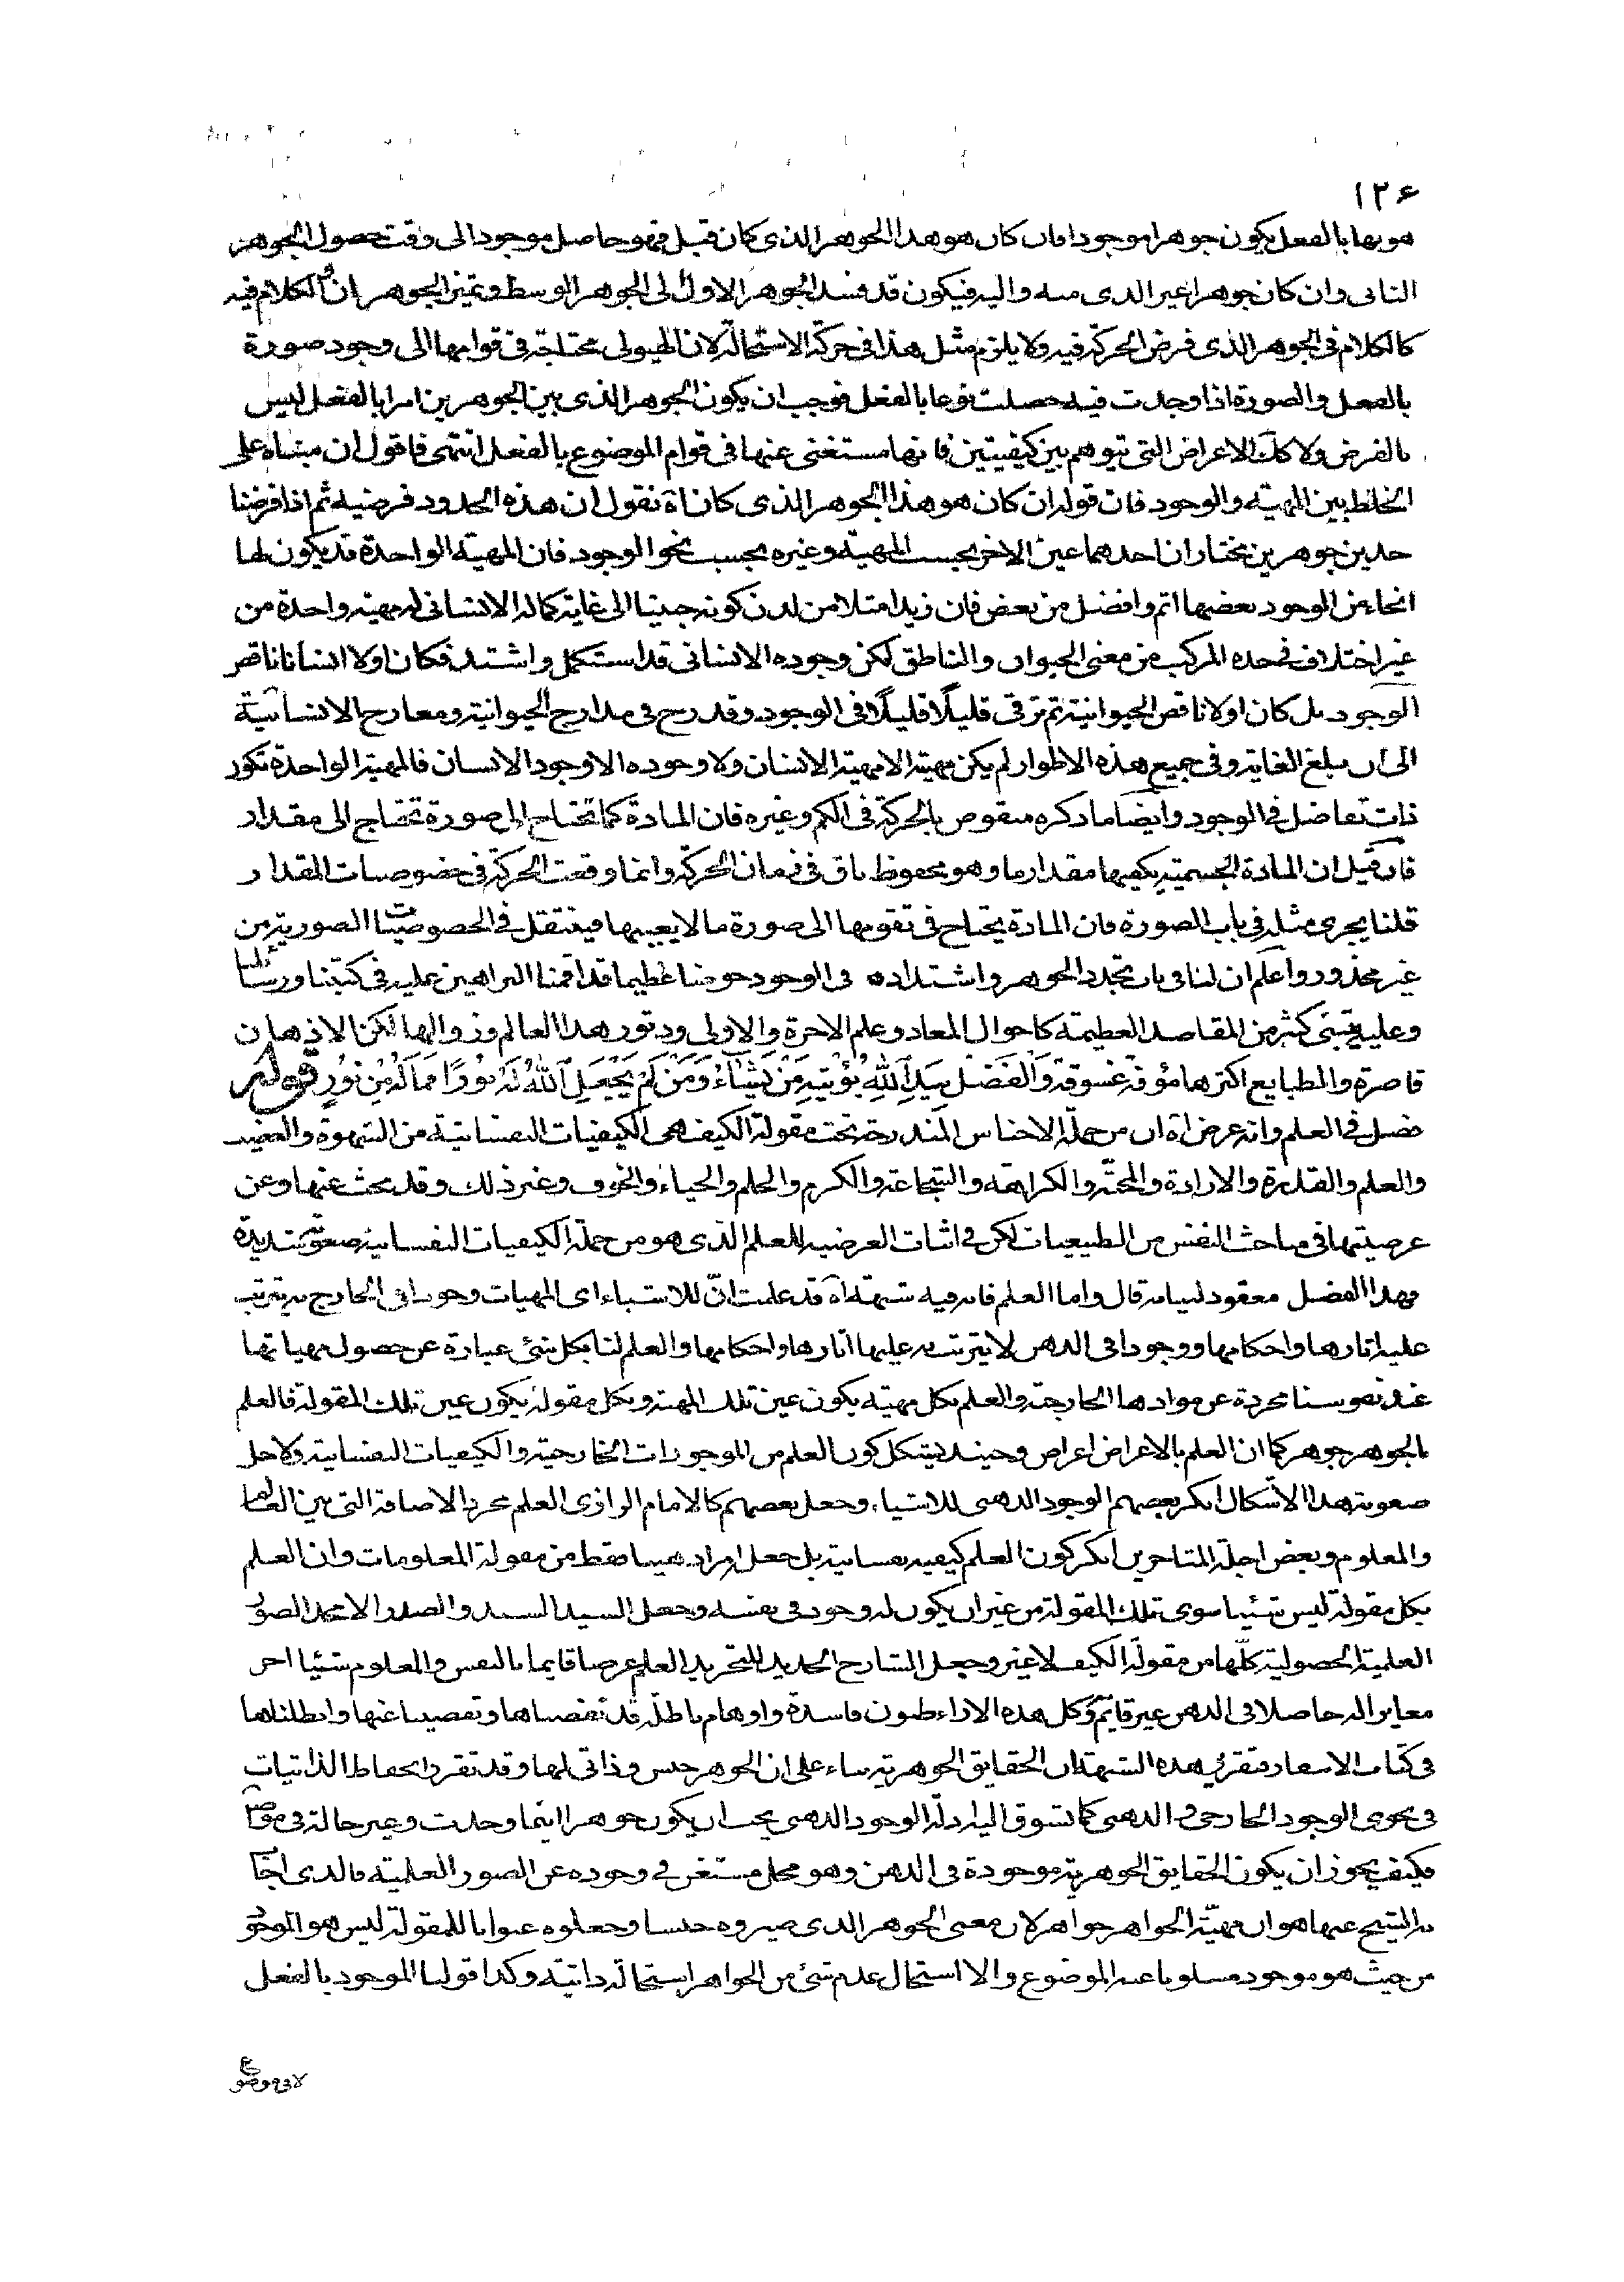 ١٢۶
هو بها بالفعل يكون جوهرا موجودا فان كان هو هذا الجوهر الذى كان قبل فهو حاصل موجود الى وقت حصول الجوهر
الثانى وان كان جوهرا غير الذى منه واليه فيكون قد فسد الجوهر الاول الى الجوهر الوسط وتميز الجوهران والكلام فيه
كالكلام فى الجوهر الذى فرض الحركة فيه ولا يلزم مثل هذا فى حركة الاستحالة لان الهيولى محتاجة فى قوامها الى وجود صورة
بالفعل والصورة اذا وجدت فيه حصلت نوعا بالفعل فوجب ان يكون الجوهر الذى بين الجوهرين امرا بالفعل ليس
بالفرض ولا كك الاعراض التى تتوهم بين كيفيتين فانها مستغنى عنها فى قوام الموضوع بالفعل انتهى فاقول ان مبناه على
الخلط بين المهية والوجود فان قوله ان كان هو هذا الجوهر الذى كان اه نقول ان هذه الحدود فرضية ثم اذا فرضنا
حدين جوهرين نختار ان احدهما عين الاخر بحسب المهية وغيره بحسب نحو الوجود فان المهية الواحدة قد يكون لها
انحاء من الوجود بعضها اتم وافضل من بعض فان زيدا مثلا من لدن كونه جنينا الى غاية كماله الانسانى له مهية واحدة من
غير اختلاف فى حده المركب من معنى الحيوان والناطق لكن وجوده الانسانى قد استكمل واشتد فكان اولا انسانا ناقص
الوجود بل كان اولا ناقص الحيوانية ثم ترقى قليلًا قليلًا فى الوجود وتدرج فى مدارج الحيوانية ومعارج الانسانية
الى ان بلغ الغاية وفى جميع هذه الاطوار لم يكن مهية الا مهية الانسان ولا وجوده الا وجود الانسان فالمهية الواحدة تكون
ذات تفاضل فى الوجود وايضا ما ذكره منقوض بالحركة فى الكم وغيره فان المادة كما تحتاج الى صورة تحتاج الى مقدار
فان قيل ان المادة الجسمية يكفيها مقدار ما وهو محفوظ باق فى زمان الحركة وانما وقعت الحركة فى خصوصيات المقدار
قلنا يجرى مثله فى باب الصورة فان المادة يحتاج فى تقومها الى صورة ما لا بعينها فينتقل فى الخصوصيات الصورية من
غير محذور واعلم ان لنا فى باب تجدد الجوهر واشتداده فى الوجود خوضا عظيما قد اقمنا البراهين عليه فى كتبنا ورسائلنا
وعليه يبتنى كثير من المقاصد العظيمة كاحوال المعاد وعلم الاخرة والاولى ودثور هذا العالم وزوالها لكن الاذهان
قاصرة والطبايع اكثرها مؤفة غسوقة وَالْفَضْل بِيَدِ اللهِ يُؤْتِيهِ مَنْ يَشَآءُ وَمَنْ لَمْ يَجْعَلِ اللهُ لَهُ نُورًا فَمَا لَهُ مِنْ نُورٍ قوله
فصل فى العلم وانه عرض اه ان من جملة الاجناس المندرجة تحت مقولة الكيف هى الكيفيات النفسانية من الشهوة والغضب
والعلم والقدرة والارادة والمحبة والكراهة والشجاعة والكرم والحلم والحياء والخوف وغير ذلك وقد بحث عنها وعن
عرضيتها فى مباحث النفس من الطبيعيات لكن فى اثبات العرضية للعلم الذى هو من جملة الكيفيات النفسانية صعوبة شديدة
فهذا الفصل معقود لبيانه قال واما العلم فان فيه شبهة اه قد علمت انّ للاشياء اى المهيات وجودا فى الخارج يترتب
عليه اثارها واحكامها ووجودا فى الذهن لا يترتب به عليها اثارها واحكامها والعلم لنا بكل شئ عبارة عن حصول مهياتها
عند نفوسنا مجردة عن موادها الخارجة والعلم بكل مهية يكون عين تلك المهية وبكل مقولة يكون عين تلك المقولة فالعلم
بالجوهر جوهر كما ان العلم بالاعراض اعراض وحينئذ يشكل كون العلم من الموجودات الخارجية والكيفيات النفسانية ولاجل
صعوبة هذا الاشكال انكر بعضهم الوجود الذهنى للاشياء وجعل بعضهم كالامام الرازى العلم مجرد الاضافة التى بين العالم
والمعلوم وبعض اجلة المتاخرين انكر كون العلم كيفية نفسانية بل جعل افراده هيهنا فقط من مقولة المعلومات وان العلم
بكل مقولة ليس شيئا سوى تلك المقولة من غير ان يكون له وجود فى نفسه وجعل السيد السند والصدر الامجد الصور
العلمية الحصولية كلّها من مقولة الكيف لا غير وجعل الشارح الجديد للتجريد العلم عرضا قايما بالنفس والمعلوم شيئا اخر
مغايرا له حاصلا فى الذهن غير قايم وكل هذه الاراء ظنون فاسدة واوهام باطلة قد نقضناها وتفصينا عنها وابطلناها
فى كتاب الاسفار فتقرير هذه الشبهة ان الحقايق الجوهرية بناء على ان الجوهر جنس وذاتى لها وقد تقرر انحفاظ الذاتيات
فى نحوى الوجود الخارجى والذهنى كما تسوق اليه ادلة الوجود الذهنى يجب ان يكون جوهرا اينما وجدت وغير حالة فى موضوع
فكيف يجوز ان يكون الحقايق الجوهرية موجودة فى الذهن وهو محل مستغن فى وجوده عن الصور العلمية فالذى اجاب
به الشيخ عنها هو ان مهيّة الجواهر جواهر لان معنى الجوهر الذى صيروه جنسا وجعلوه عنوانا للمقولة ليس هو الموجود
من حيث هو موجود مسلوبا عنه الموضوع والا استحال عدم شئ من الجواهر استحالة ذاتية وكذا قولنا الموجود بالفعل
لا فى موضوع